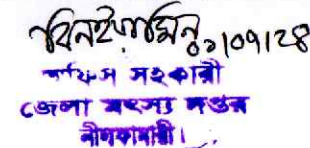 বিনইয়ামিন ০১/০৭/২৪
অফিস সহকারী
জেলা মৎস্য দপ্তর
নীলফামারী।